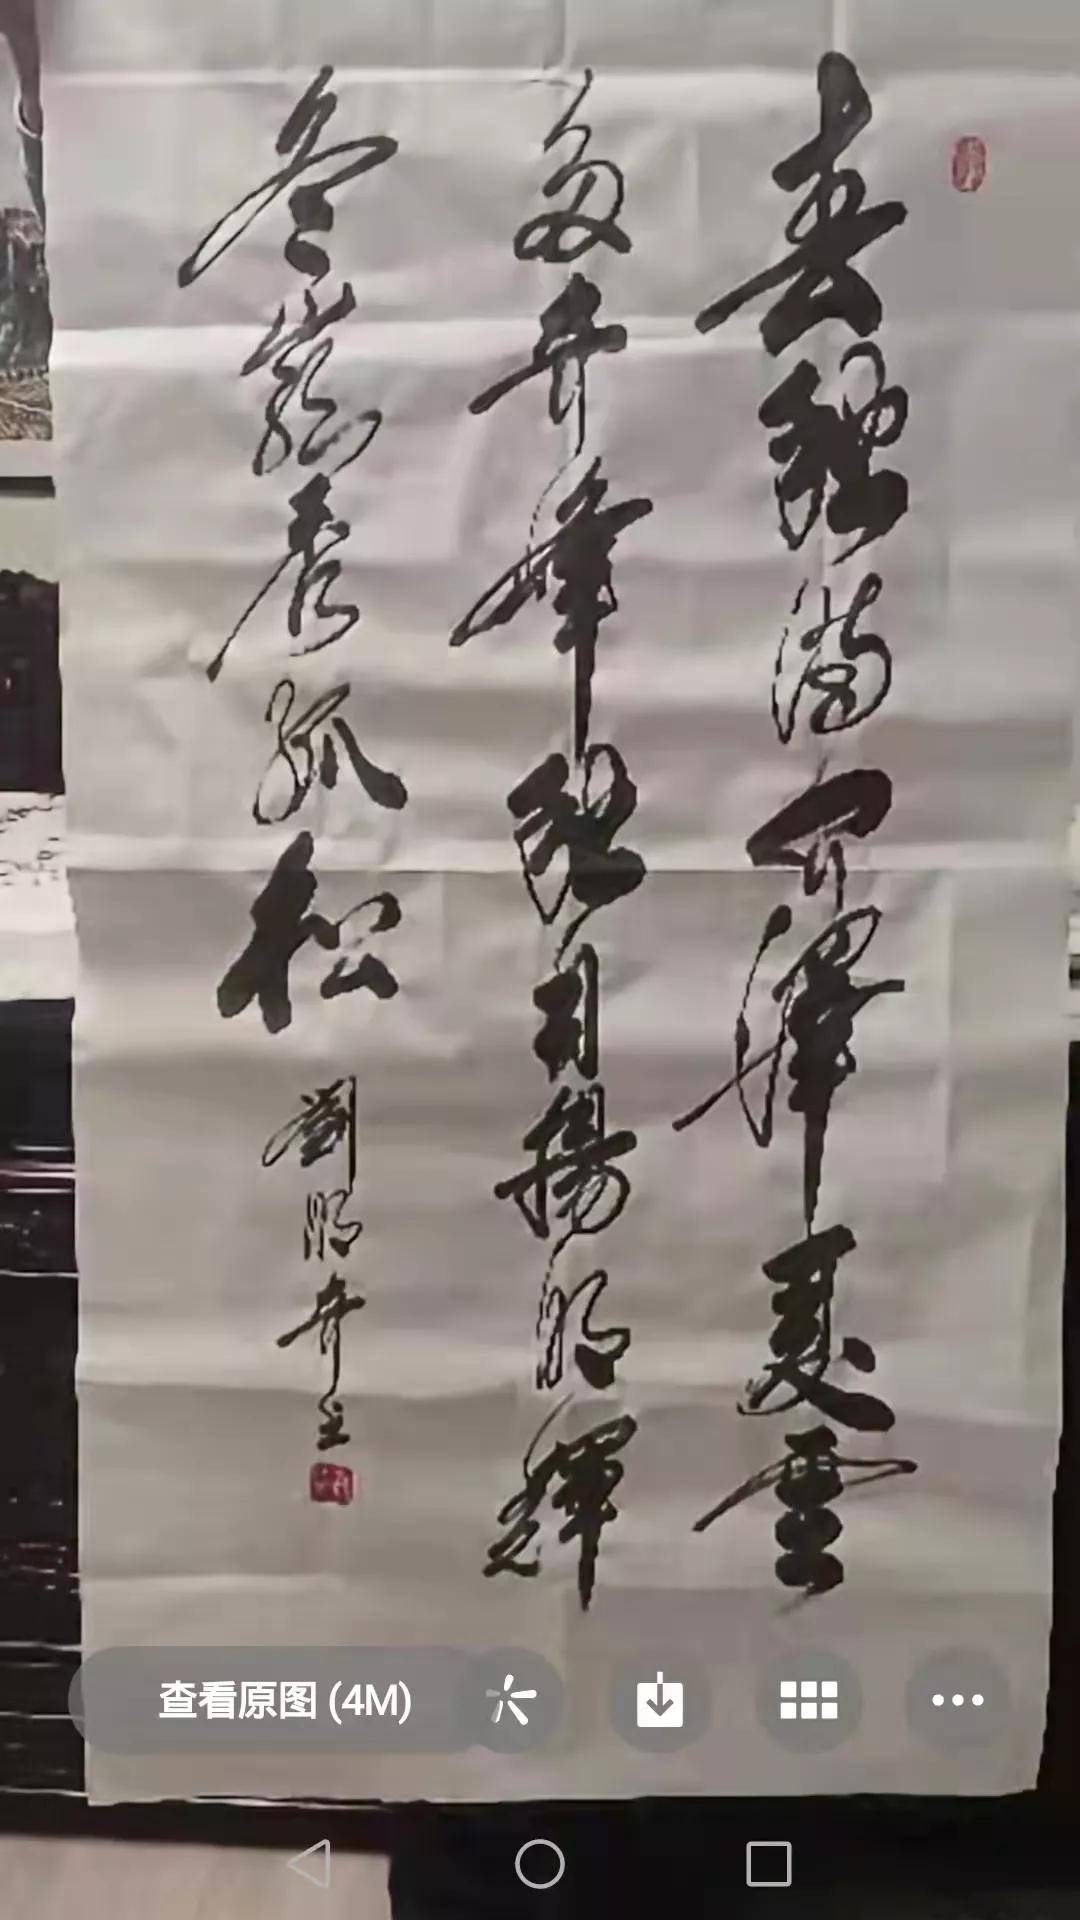 春滿四澤夏雲
多奇峰月揚明輝
冬嶺秀孤松 劉明
查看原图 (4M)